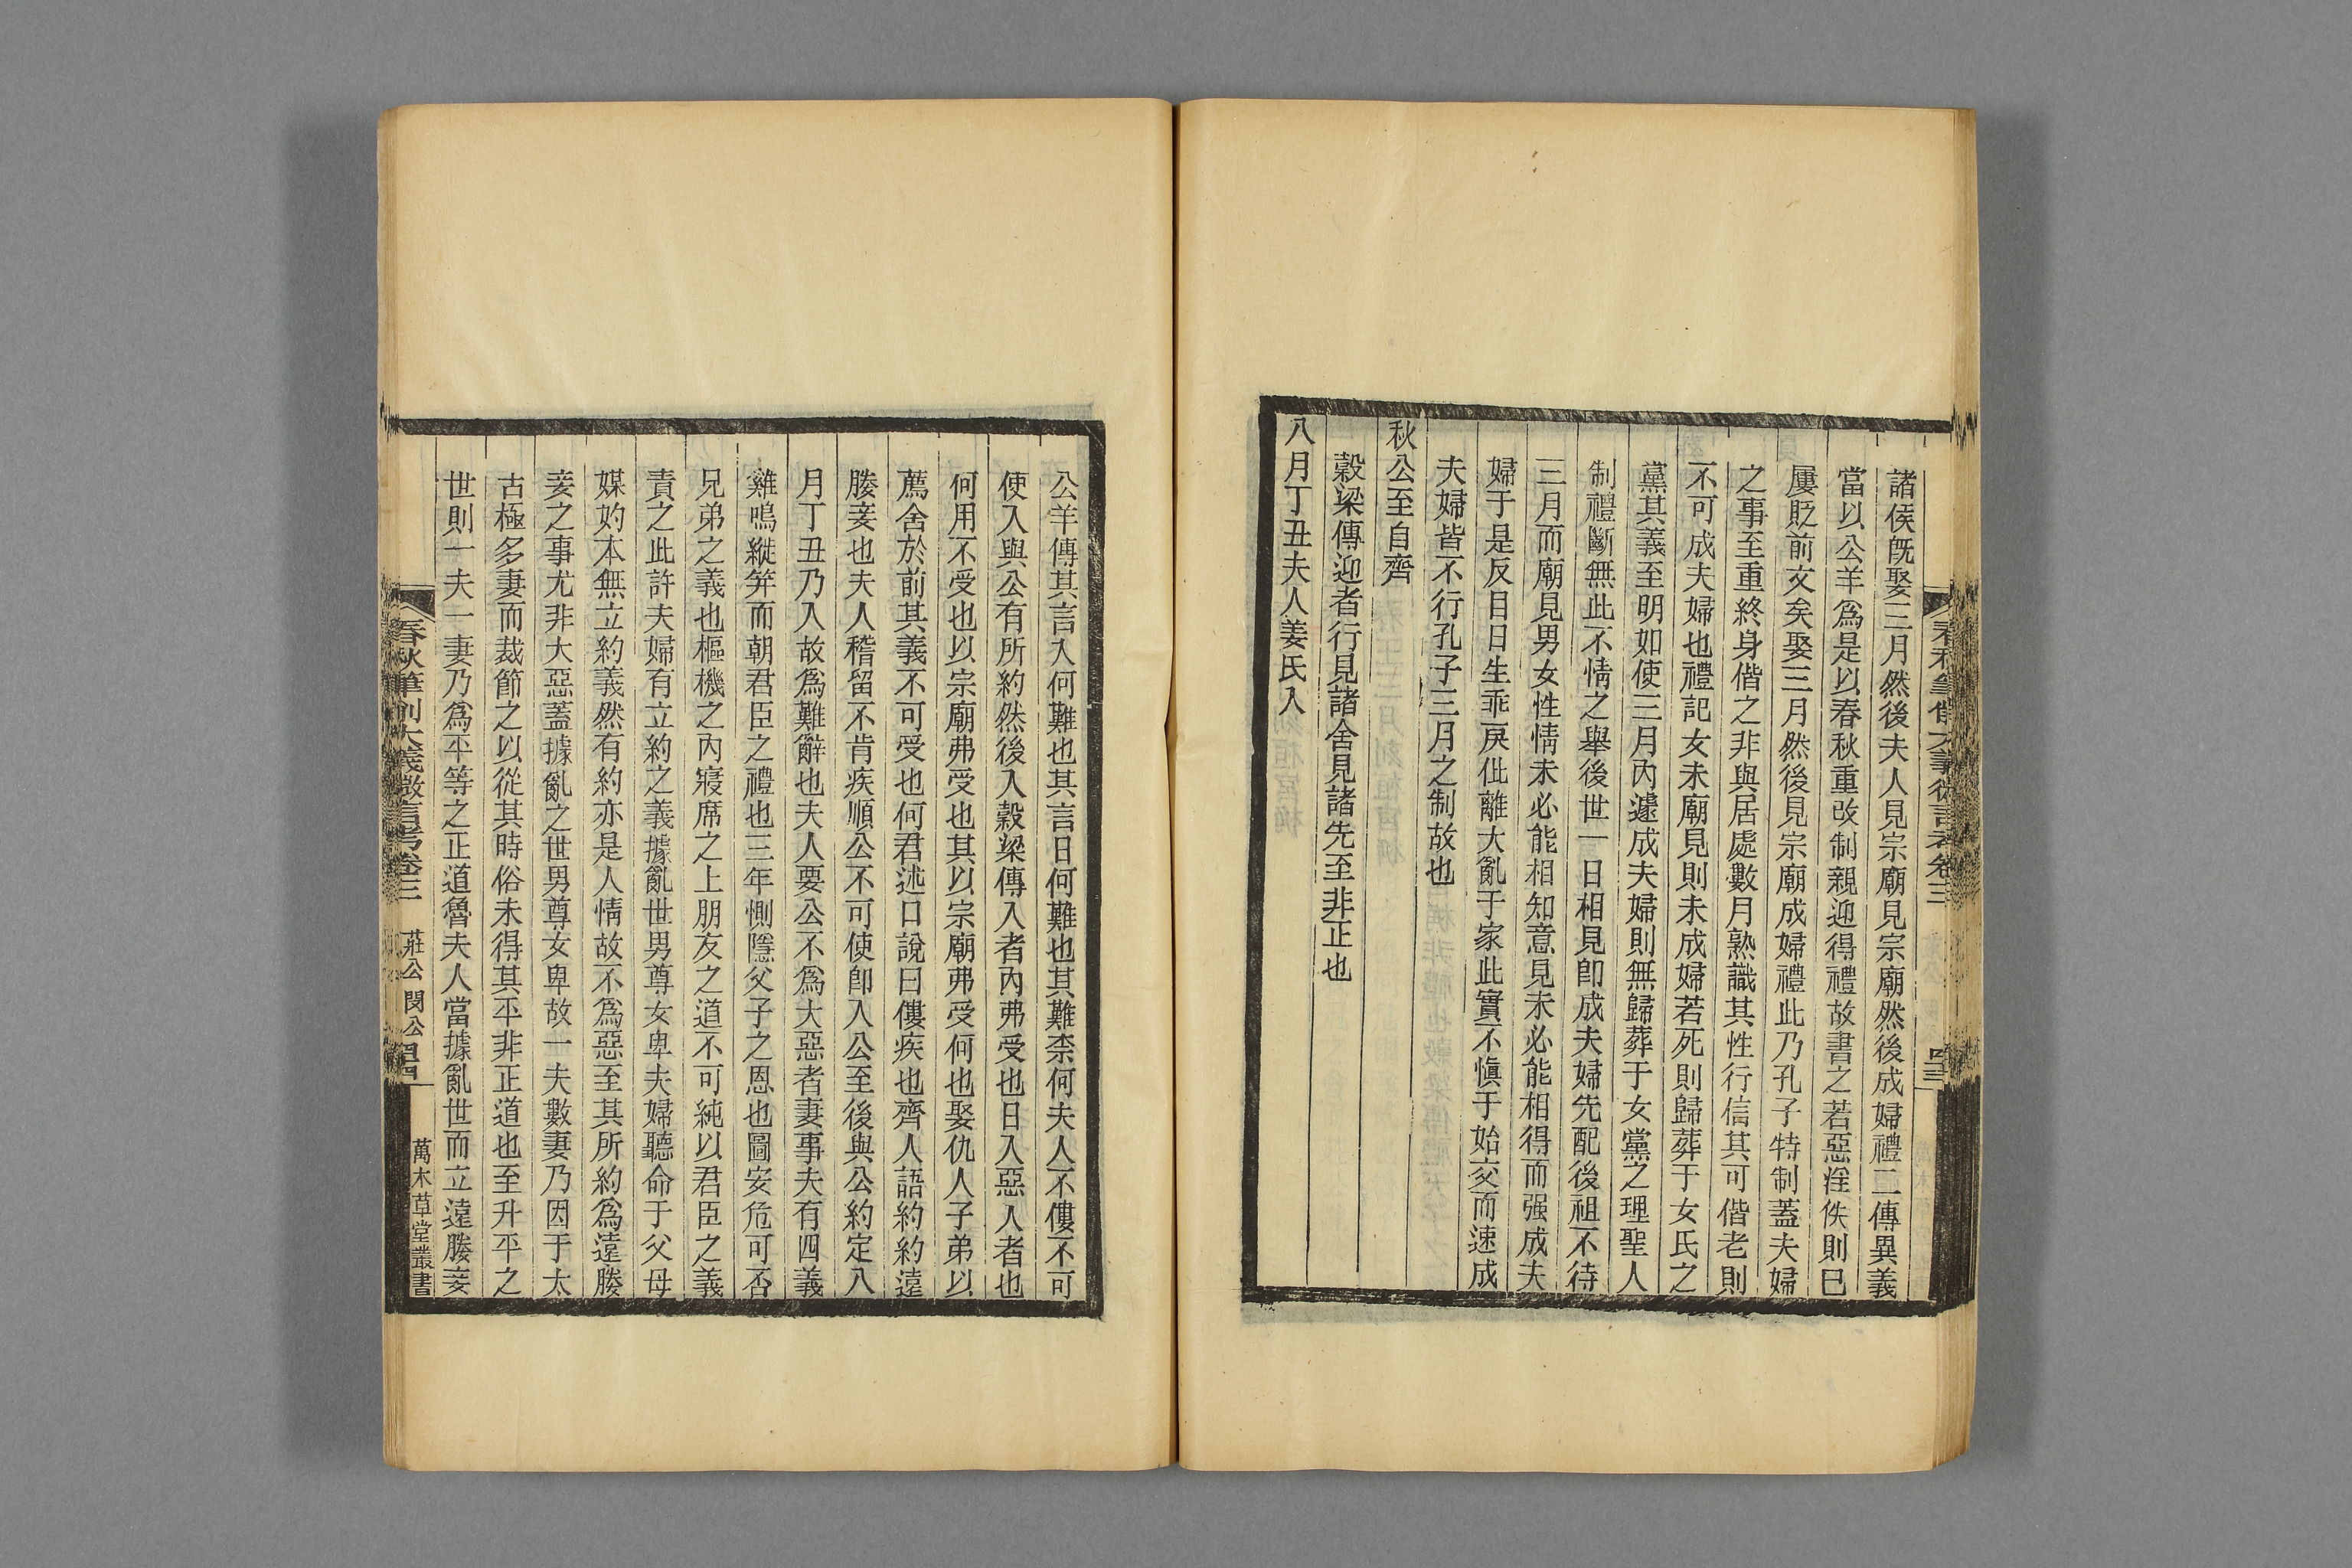 諸侯既娶三月然後夫人見宗廟見宗廟然後成婦禮二傳異義
當以公羊爲是以春秋重改制親迎得禮故書之若惡淫佚則巳
屢貶前文矣娶三月然後見宗廟成婦禮此乃孔子特制蓋夫婦
之事至重終身偕之非與居處數月熟識其性行信其可偕老則
不可成夫婦也禮記女未廟見則未成婦若死則歸葬于女氏之
黨其義至明如使三月內遽成夫婦則無歸葬于女黨之理聖人
制禮斷無此不情之舉後世一日相見卽成夫婦先配後祖不待
三月而廟見男女性情未必能相知意見未必能相得而强成夫
婦于是反目日生乖戾仳離大亂于家此實不愼于始交而速成
夫婦皆不行孔子三月之制故也
秋公至自齊
穀梁傳迎者行見諸舍見諸先至非正也
八月丁丑夫人姜氏入
春秋筆削大義微言考卷三
公羊傳其言入何難也其言日何難也其難柰何夫人不僂不可
使入與公有所約然後入穀梁傳入者內弗受也日入惡入者也
何用不受也以宗廟弗受也其以宗廟弗受何也娶仇人子弟以
薦舍於前其義不可受也何君述口說曰僂疾也齊人語約約遠
媵妾也夫人稽留不肯疾順公不可使卽入公至後與公約定八
月丁丑乃入故爲難辭也夫人要公不爲大惡者妻事夫有四義
雞鳴縰笄而朝君臣之禮也三年惻隱父子之恩也圖安危可否
兄弟之義也樞機之內寢席之上朋友之道不可純以君臣之義
責之此許夫婦有立約之義據亂世男尊女卑夫婦聽命于父母
媒妁本無立約義然有約亦是人情故不爲惡至其所約爲遠媵
妾之事尤非大惡蓋據亂之世男尊女卑故一夫數妻乃因于太
古極多妻而裁節之以從其時俗未得其平非正道也至升平之
世則一夫一妻乃爲平等之正道魯夫人當據亂世而立遠媵妾
春秋筆削大義微言考卷三
莊公 閔公
萬木草堂叢書